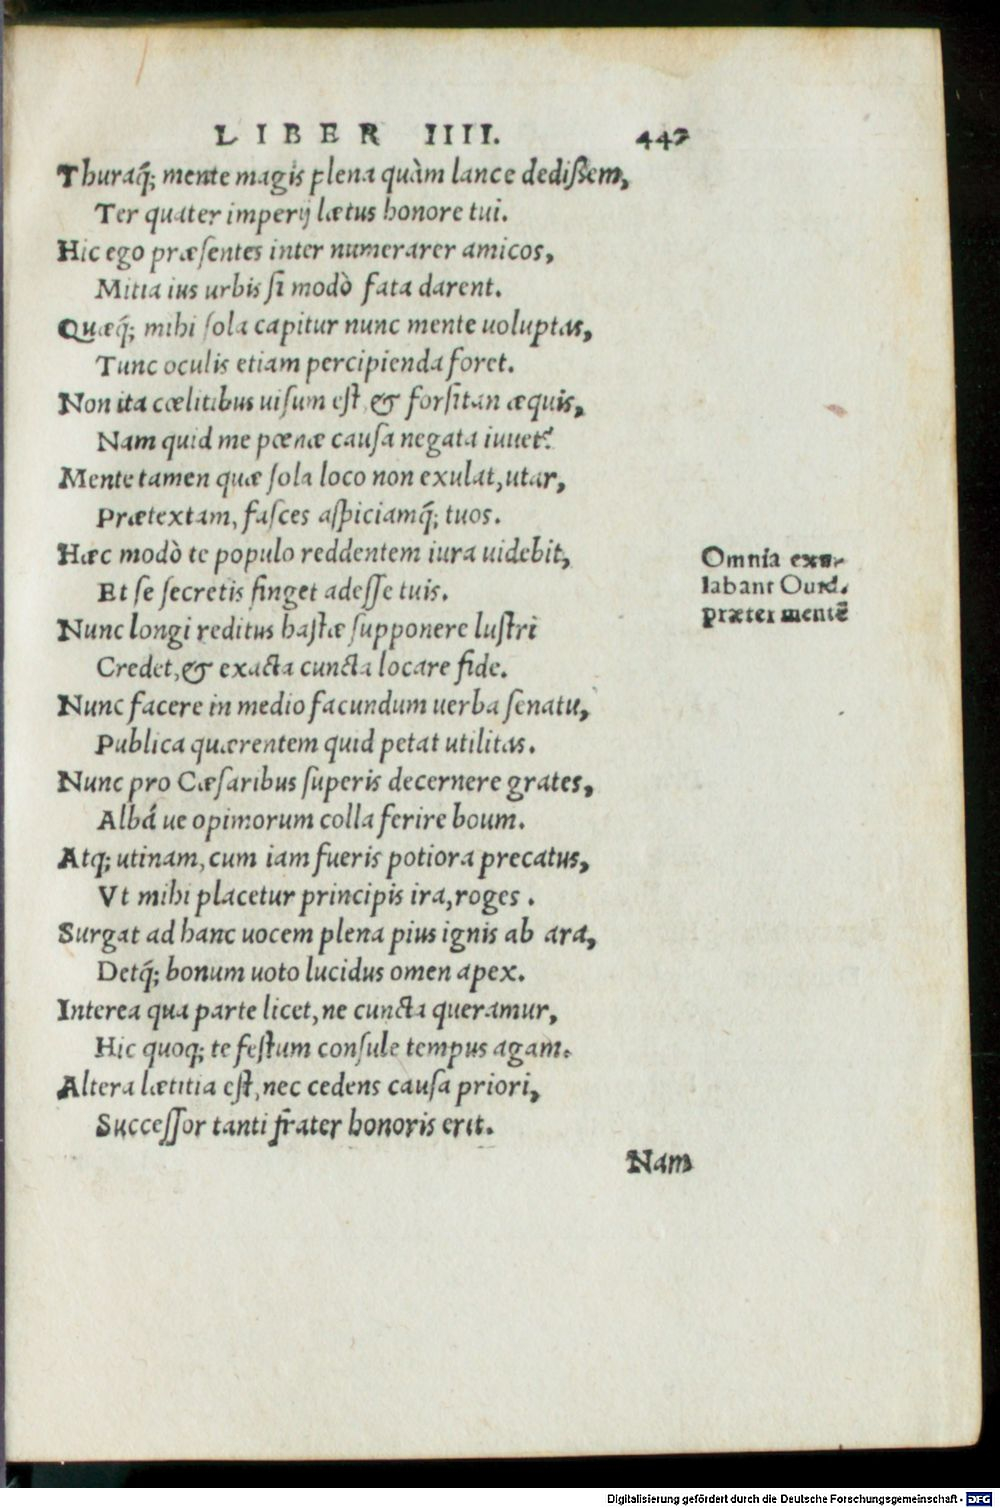 LIBER IIII. 447
Thuraq́; mente magis plena quàm lance dedissem,
Ter quater imperij lætus honore tui.
Hic ego præsentes inter numerarer amicos,
Mitia ius urbis si modò fata darent.
Quæq́; mihi sola capitur nunc mente uoluptas,
Tunc oculis etiam percipienda foret.
Non ita cœlitibus uisum est, & forsitan æquis,
Nam quid me pœnæ causa negata iuuet?
Mente tamen quæ sola loco non exulat, utar,
Prætextam, fasces aspiciamq́; tuos.
Hæc modò te populo reddentem iura uidebit,
Et se secretis finget adesse tuis.
Nunc longi reditus hastæ supponere lustri
Credet, & exacta cuncta locare fide.
Nunc facere in medio facundum uerba senatu,
Publica quærentem quid petat utilitas.
Nunc pro Cæsaribus superis decernere grates,
Albá ue opimorum colla ferire boum.
Atq; utinam, cum iam fueris potiora precatus,
Vt mihi placetur principis ira, roges.
Surgat ad hanc uocem plena pius ignis ab ara,
Detq́; bonum uoto lucidus omen apex.
Interea qua parte licet, ne cuncta queramur,
Hic quoq; te festum consule tempus agam.
Altera lætitia est, nec cedens causa priori,
Successor tanti frater honoris erit.
Nam
Omnia exu-
labant Ouid.
præter mentẽ
Digitalisierung gefördert durch die Deutsche Forschungsgemeinschaft - DFG